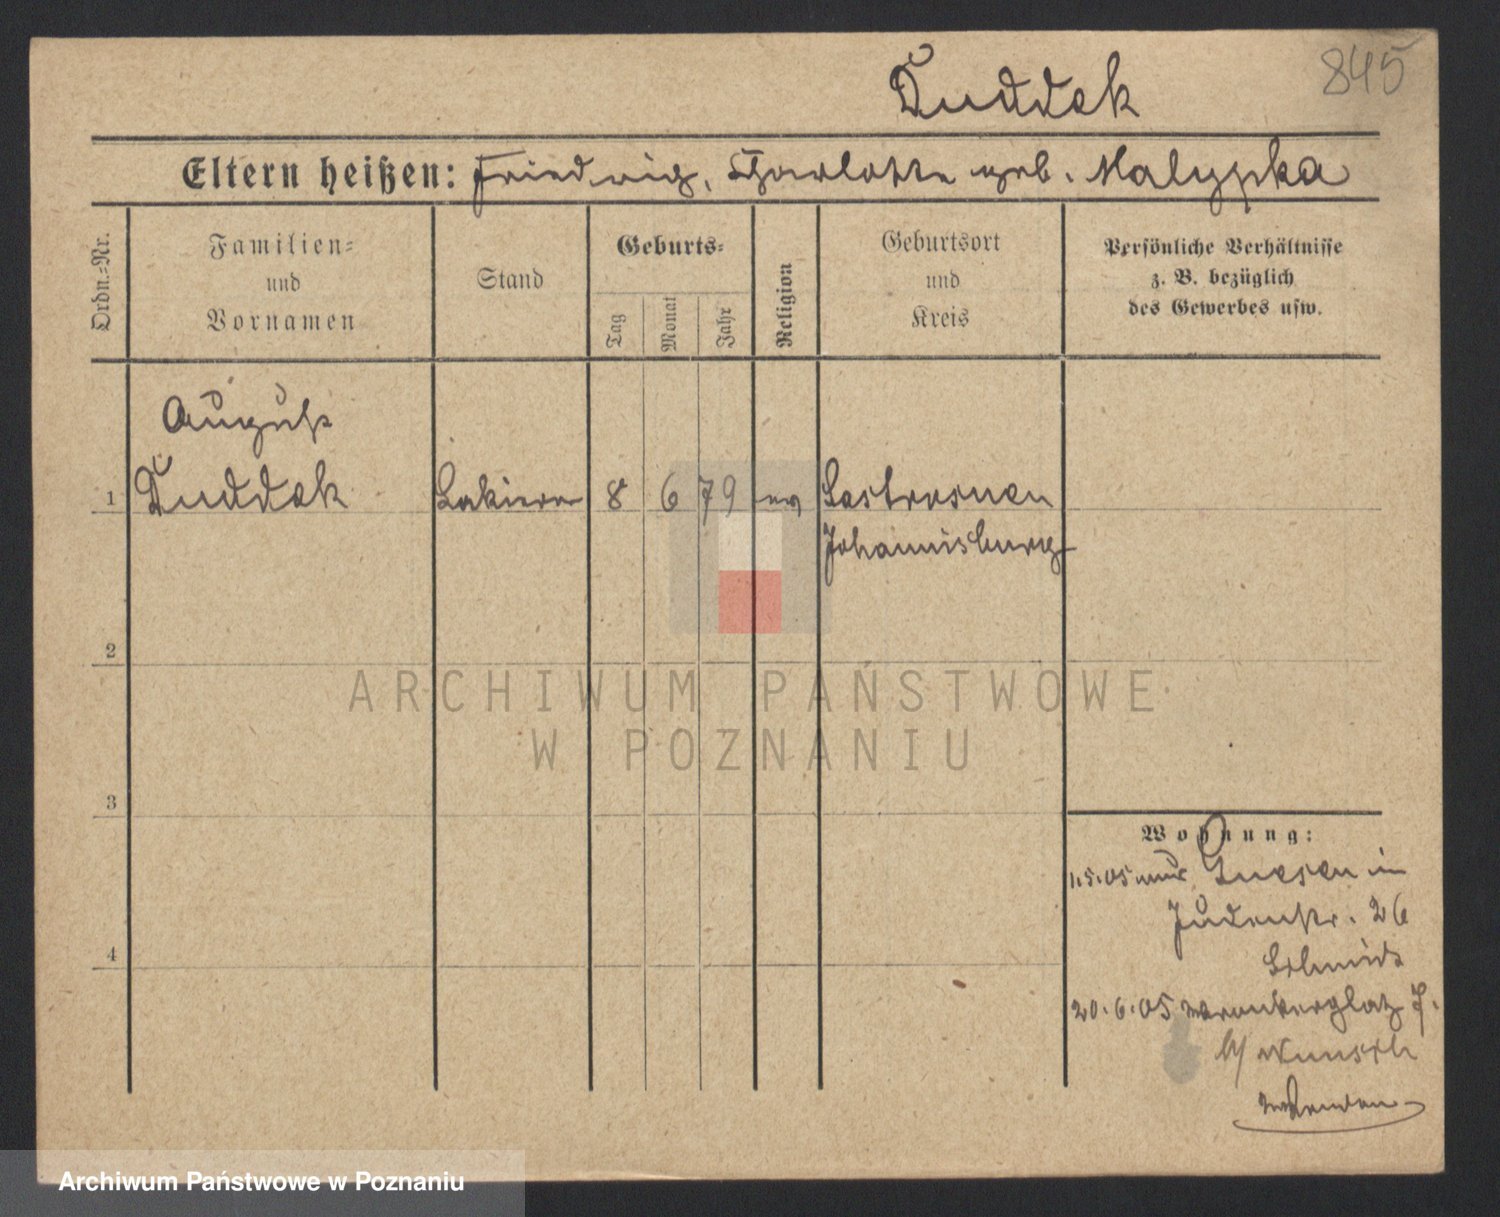 Duddek
845
Eltern heißen: Friedrich, Charlotte geb. Malypka
Ordn.-Nr.
Familien-
und
Vornamen
Stand
Geburts-
Tag
Monat
Jahr
Religion
Geburtsort
und
Kreis
Persönliche Verhältnisse
z. B. bezüglich
des Gewerbes usw.
August
1 Duddek Lakierer 8 6 79 ev Lastrosnen
Johannisburg
2
ARCHIWUM PAŃSTWOWE
W POZNANIU
3
Wohnung:
1.5.05 aus Gnesen in
Judenstr. 26
Schmidt
4
20.6.05 Wronkerplatz 7.
b/ Wunsch
Archiwum Państwowe w Poznaniu